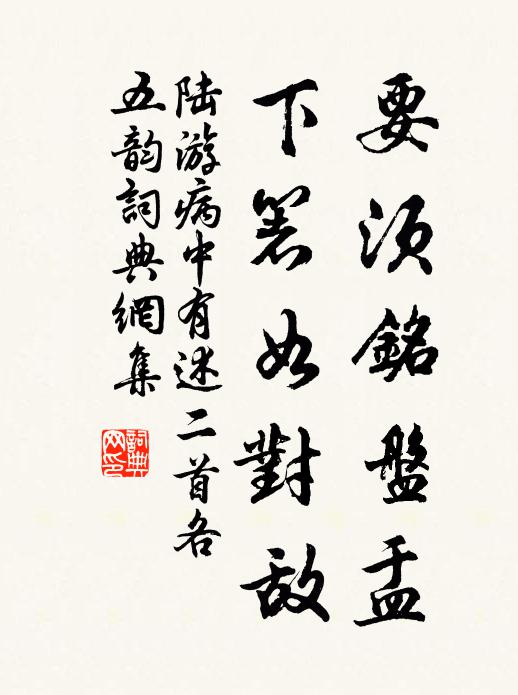 要須銘盤盂
下箸如對敌
陆游病中有述二首各
五韵詞典網集
詞典
网印